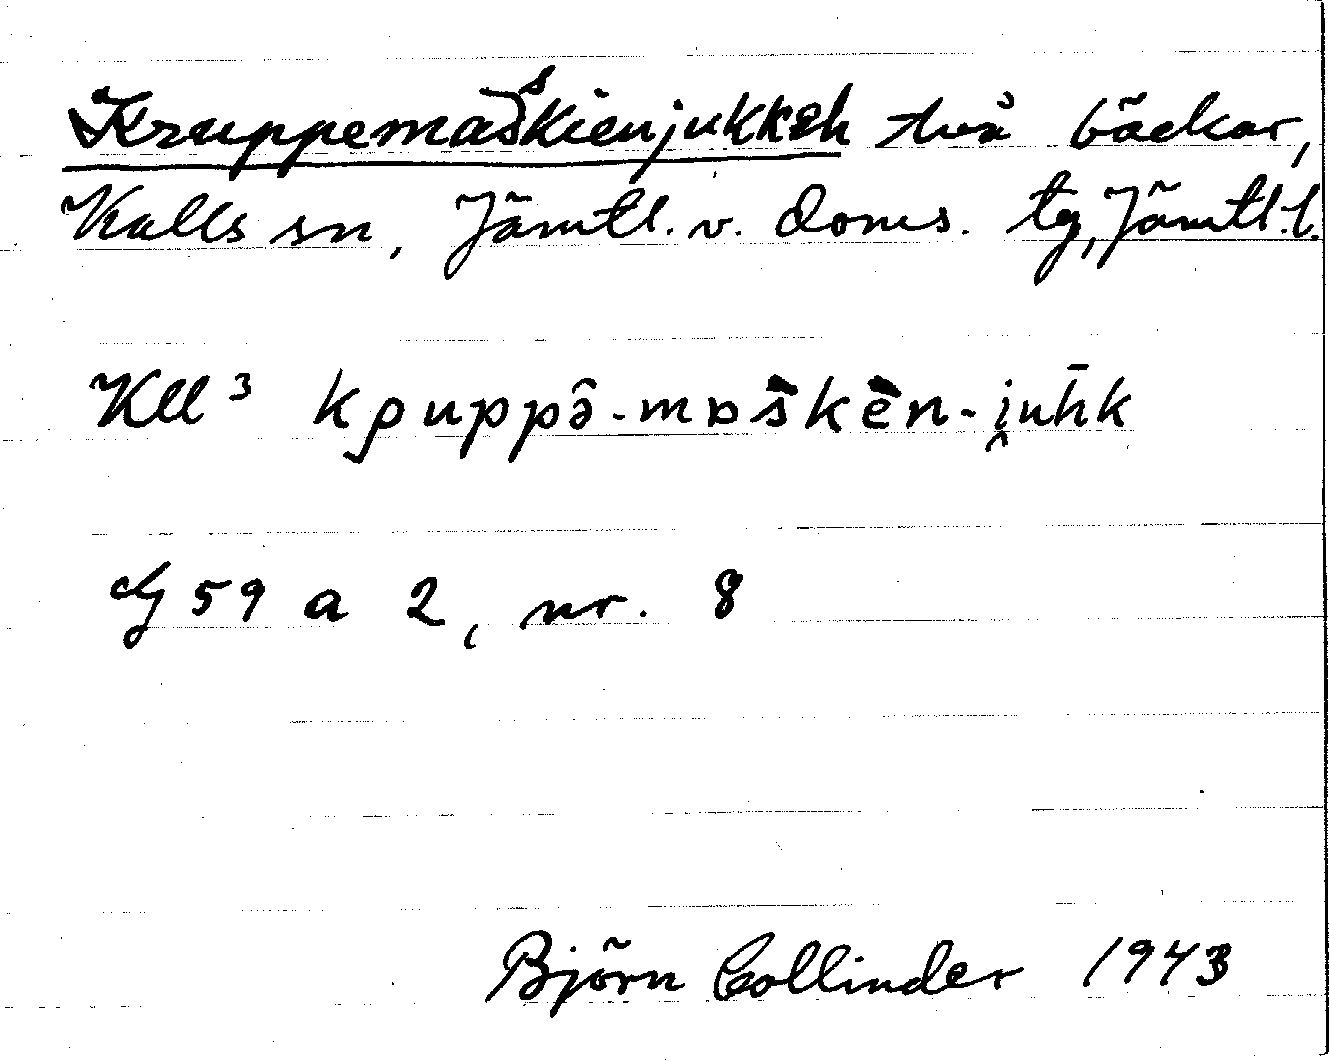 Kruppemasskienjukkeh två bäckar,
Kalls sn, Jämtl. v. doms. tg, Jämtl. l.
Kll³ kρuppə̑-mɒškèn-i̯uh̄k
G 59 a 2, nr. 8
Björn Collinder 1943